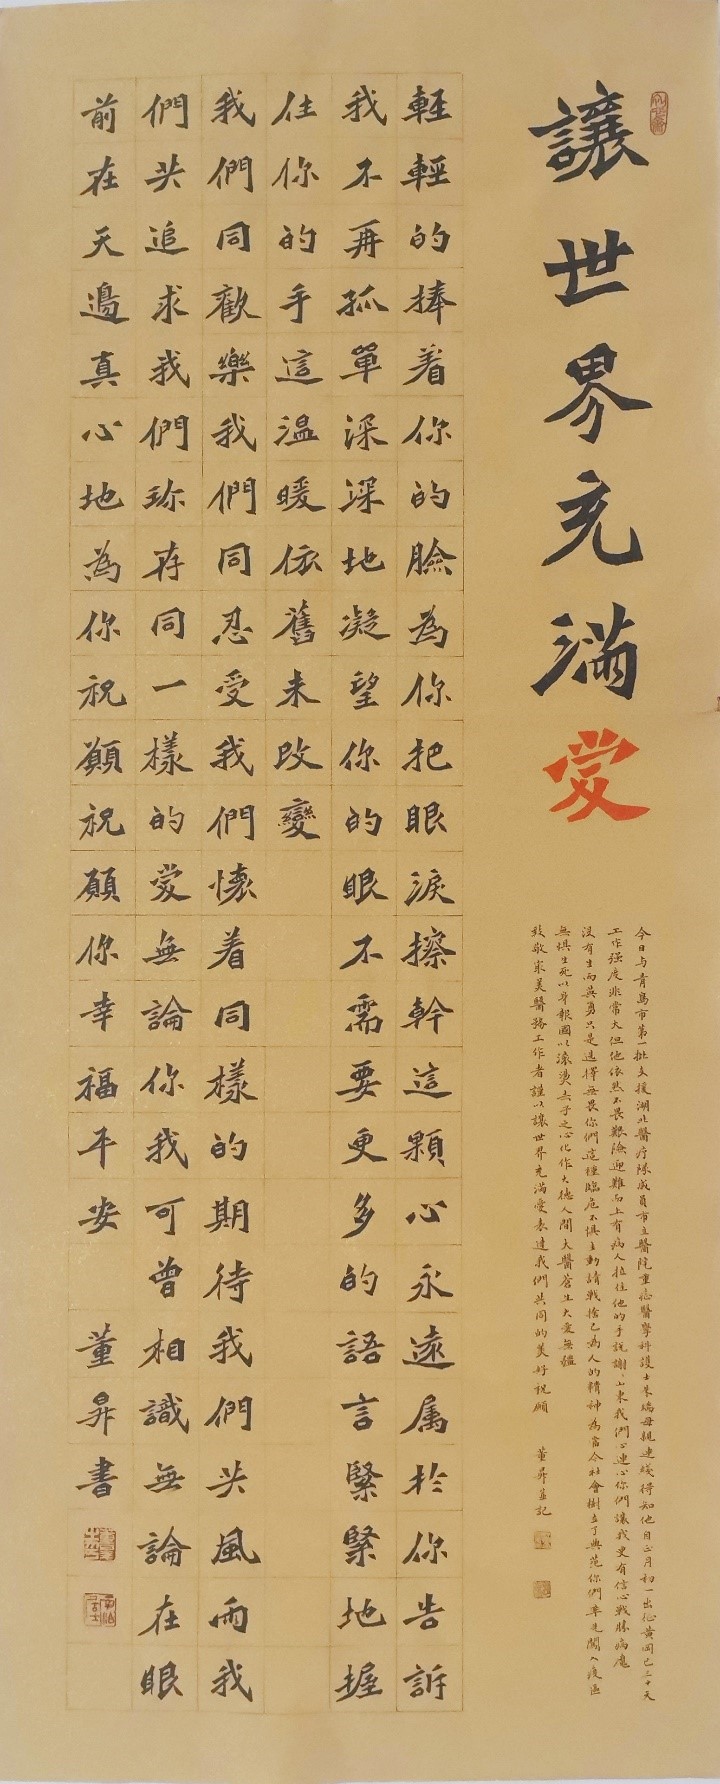 讓世界充滿愛
今日与青島市第一批支援湖北醫疗隊成員市立醫院重症醫學科護士朱瑞母親連綫得知他自正月初一出征黄岡已三十天
工作强度非常大但他依然不畏艱險迎難而上有病人拉住他的手説謝々山東我們心連心你們讓我更有信心戰勝病魔
没有生而英勇只是選擇無畏你們這種臨危不惧主動請戰捨己為人的精神為當今社會樹立了典范你們率先闖入疫區
無惧生死以身報國以滚燙赤子之心化作大德人間大醫蒼生大愛無疆
致敬最美醫務工作者謹以讓世界充滿愛表達我們共同的美好祝願 董昇并記
輕輕的捧着你的臉為你把眼淚擦幹這顆心永遠属於你告訴
我不再孤單深深地凝望你的眼不需要更多的語言緊緊地握
住你的手這温暖依舊未改變
我們同歡樂我們同忍受我們懷着同樣的期待我們共風雨我
們共追求我們珎存同一樣的愛無論你我可曾相識無論在眼
前在天邊真心地為你祝願祝願你幸福平安 董昇書